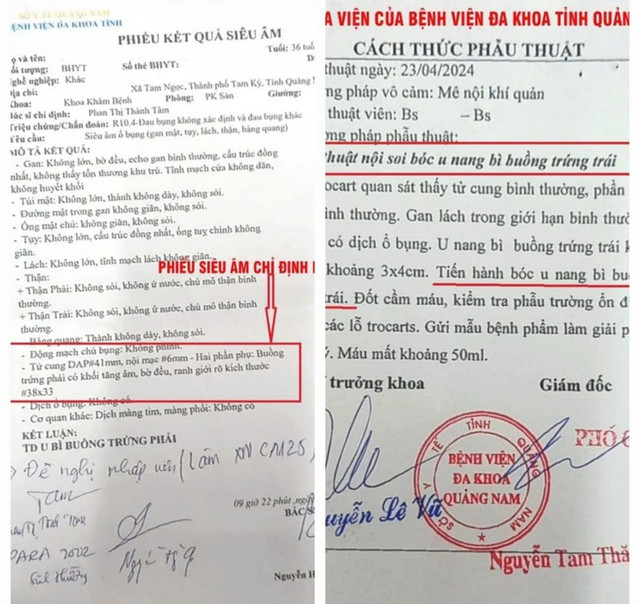 SỞ Y TẾ QUẢNG NAM
BỆNH VIỆN ĐA KHOA TỈNH
PHIẾU KẾT QUẢ SIÊU ÂM
ọ và tên:
Tuổi: 36 tuổ
ối tượng: BHYT
Số thẻ BHYT:
ghề nghiệp: Khác
ịa chỉ:
Xã Tam Ngọc, Thành phố Tam Kỳ, Tỉnh Quảng
hoa: Khoa Khám Bệnh
Phòng: PK Sản
Giường:
ác sĩ chỉ định: Phan Thị Thành Tâm
riệu chứng/Chẩn đoán: R10.4-Đau bụng không xác định và đau bụng khác
êu cầu: Siêu âm ổ bụng (gan mật, tuỵ, lách, thận, bàng quang)
MÔ TẢ KẾT QUẢ:
- Gan: Không lớn, bờ đều, echo gan bình thường, cấu trúc đồng
nhất, không thấy tổn thương khu trú. Tĩnh mạch cửa không dãn,
không huyết khối
- Túi mật: Không lớn, thành không dày, không sỏi.
- Đường mật trong gan không giãn, không sỏi.
- Ống mật chủ: không giãn, không sỏi.
- Tụy: Không lớn, cấu trúc đồng nhất, ống tuỵ chính không
giãn.
- Lách: Không lớn, tĩnh mạch lách không giãn.
- Thận:
PHIẾU SIÊU ÂM CHỈ ĐỊNH
+ Thận Phải: Không sỏi, không ứ nước, chủ mô thận bình
thường.
+ Thận Trái: Không sỏi, không ứ nước, chủ mô thận bình
thường.
- Bàng quang: Thành không dày, không sỏi.
- Động mạch chủ bụng: Không phình.
- Tử cung DAP#41mm, nội mạc #6mm - Hai phần phụ: Buồng
trứng phải có khối tăng âm, bờ đều, ranh giới rõ kích thước
#38x33
- Dịch ổ bụng: Không có.
- Cơ quan khác: Dịch màng tim, màng phổi: Không có
KẾT LUẬN:
TD U BÌ BUỒNG TRỨNG PHẢI
Đề nghị nhập viện (Làm XN CA125)
Tam
09 giờ 22 phút, ngày
BÁC S
PARA 2002
Nguyễn H
A VIỆN CỦA BỆNH VIỆN ĐA KHOA TỈNH QUẢNG
CÁCH THỨC PHẪU THUẬT
thuật ngày: 23/04/2024
ng pháp vô cảm: Mê nội khí quản
thuật viên: Bs – Bs
ơng pháp phẫu thuật:
thuật nội soi bóc u nang bì buồng trứng trái
ocart quan sát thấy tử cung bình thường, phần
ình thường. Gan lách trong giới hạn bình thườ
có dịch ổ bụng. U nang bì buồng trứng trái k
khoảng 3x4cm. Tiến hành bóc u nang bì bu
trái. Đốt cầm máu, kiểm tra phẫu trường ổn đ
các lỗ trocarts. Gửi mẫu bệnh phẩm làm giải p
. Máu mất khoảng 50ml.
trưởng khoa
Giám đốc
PHÓ G
SỞ Y TẾ TỈNH QUẢNG NAM
BỆNH VIỆN
ĐA KHOA
QUẢNG NAM
uyễn Lê Vũ
Nguyễn Tam Thă